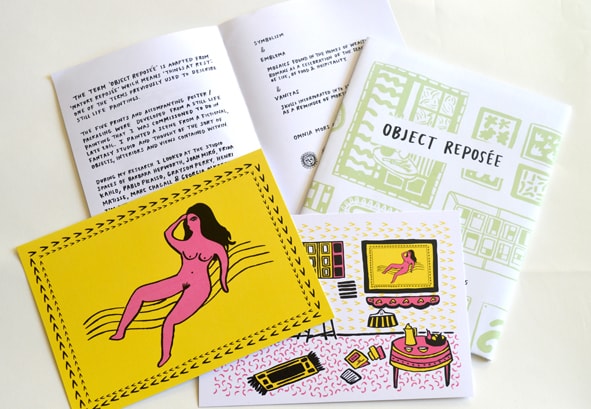 THE TERM 'OBJECT REPOSÉE' IS ADAPTED FROM
'NATURE REPOSÉE' WHICH MEANS 'THINGS AT REST',
ONE OF THE TERMS PREVIOUSLY USED TO DESCRIBE
STILL LIFE PAINTINGS.
THE FIVE PRINTS AND ACCOMPANYING POSTER/
PACKAGING WERE DEVELOPED FROM A STILL LIFE
PAINTING THAT I WAS COMMISSIONED TO DO IN
LATE FALL. I PAINTED A SCENE FROM A FICTIONAL,
FANTASY STUDIO AND THOUGHT OF THE SORT OF
OBJECTS, INTERIORS AND VIEWS CONTAINED WITHIN
DURING MY RESEARCH I LOOKED AT THE STUDIO
SPACES OF BARBARA HEPWORTH, JOAN MIRÓ, FRIDA
KAHLO, PABLO PICASSO, GRAYSON PERRY, HENRI
MATISSE, MARC CHAGALL & GEORGIA
SYMBOLISM
&
EMBLEMA
MOSAICS FOUND IN THE HOMES OF
ROMANS AS A CELEBRATION OF THE
OF LIFE, OF FOOD & HOSPITALITY.
&
VANITAS
SKULLS INTEGRATED INTO
AS A REMINDER OF
OMNIA MORS
OBJECT REPOSÉE